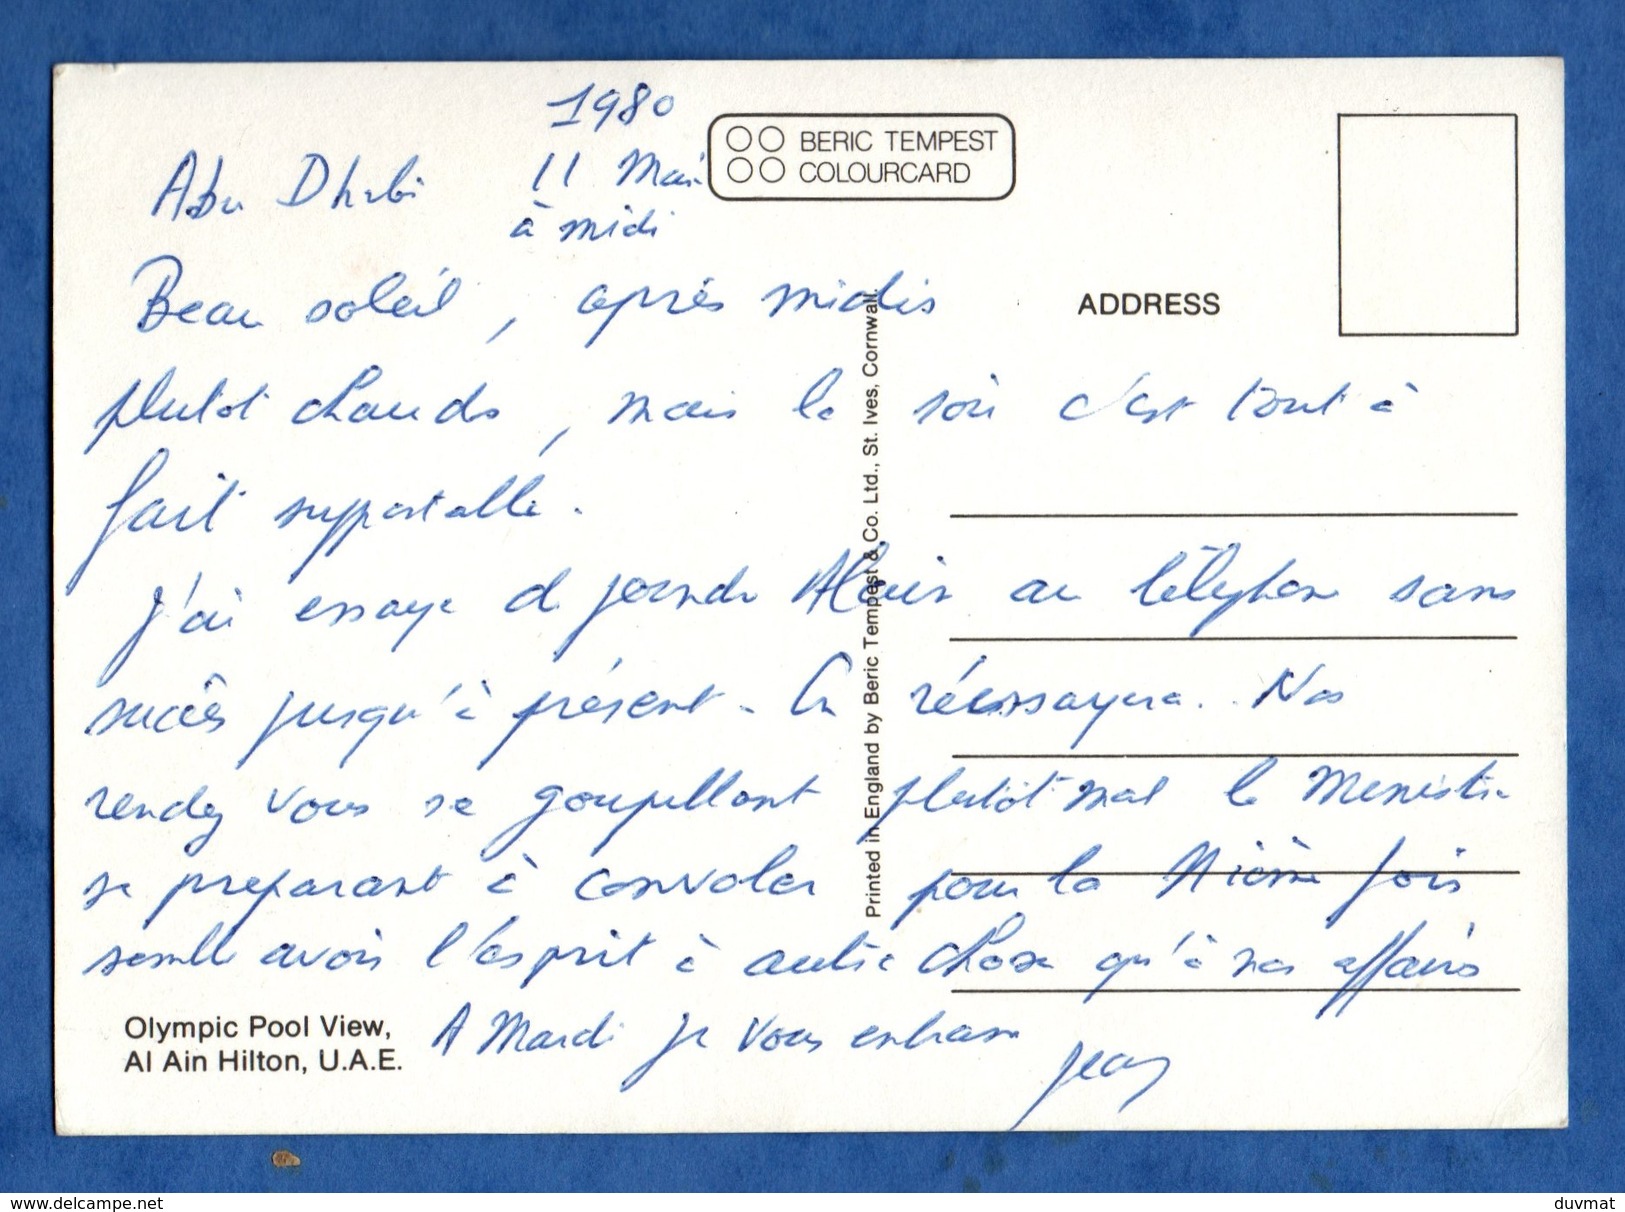 1980
Abu Dhabi 11 Mai
à midi
BERIC TEMPEST
COLOURCARD
ADDRESS
Beau soleil, après midis
plutôt chauds, mais le soir c'est tout à
fait supportable.
J'ai essayé de joindre Alain au téléphone sans
succès jusqu'à présent. On réessayera.. Nos
rendez vous se goupillent plutôt mal le Ministre
se préparant à convoler pour la Nième fois
semble avoir l'esprit à autre chose qu'à nos affaires
A Mardi je vous embrasse
Jean
Olympic Pool View,
Al Ain Hilton, U.A.E.
Printed in England by Beric Tempest & Co. Ltd., St. Ives, Cornwall.
duvmat